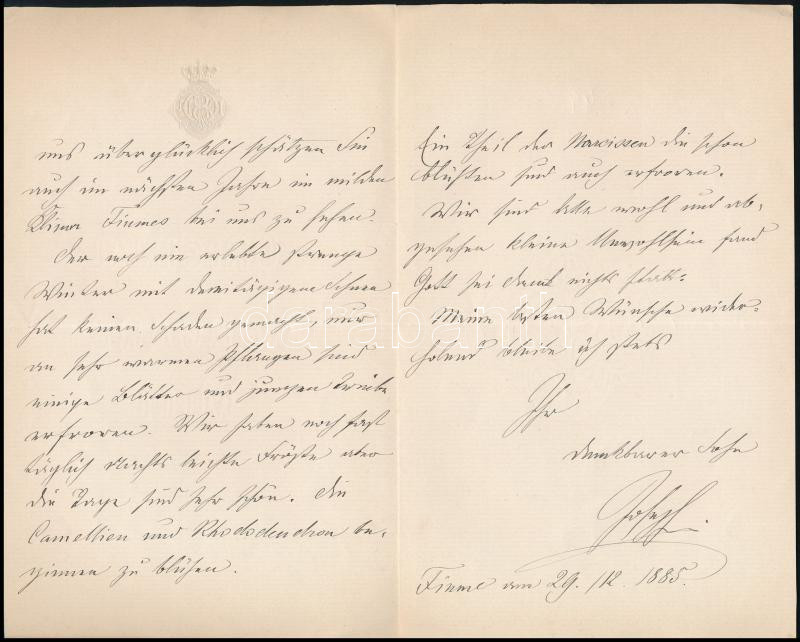 uns überglücklich schätzen Sie
auch im nächsten Jahre im milden
Klima Fiumes bei uns zu sehen.
Der noch nie erlebte strenge
Winter mit dreitägigem Schnee
hat keinen Schaden gemacht, nur
an sehr warmen Pflanzen sind
einige Blätter und jungen Triebe
erfroren. Wir haben noch fast
täglich Nachts leichte Fröste aber
die Tage sind sehr schön. Die
Camellien und Rhododendron be-
ginnen zu blühen.
Ein Theil der Narcissen die schon
blühten sind auch erfroren.
Wir sind alle wohl und ab-
gesehen kleine Unwohlsein fand
Gott sei dank nichts statt.
Meine besten Wünsche wider-
holend bleibe ich stets
Ihr
dankbarer Sohn
Joseph.
Fiume am 29./12. 1885.
darabanth